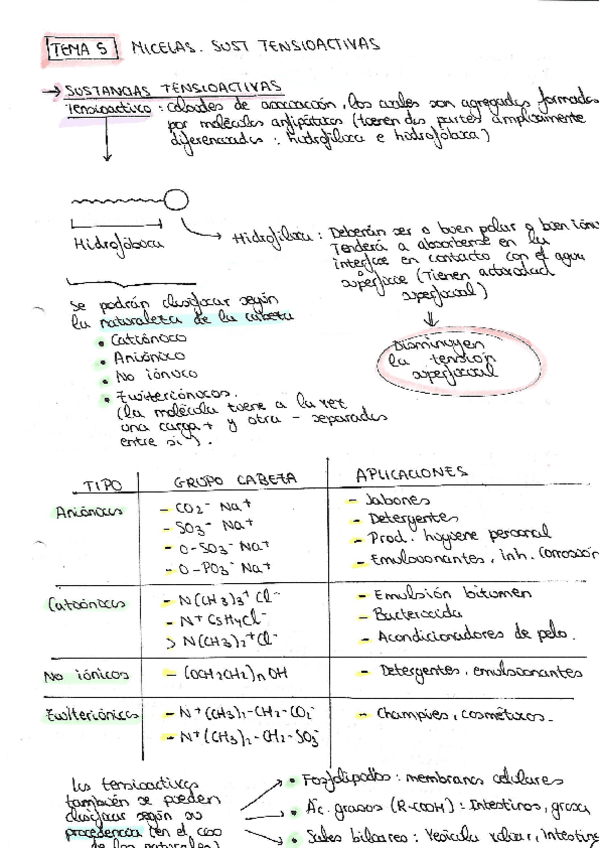 TEMA 5 MICELAS. SUST TENSIOACTIVAS
→ SUSTANCIAS TENSIOACTIVAS
Tensioactivo: Coloides de asociación, los cuales son agregados formados
por moléculas anfipáticas (tienen dos partes ampliamente
diferenciadas: hidrofílica e hidrofóbica)
Hidrofóbica
Hidrofílica: Deberán ser o buen polar o bien iónic
Tenderá a absorberse en la
interfase en contacto con el agua
superficie (Tienen actividad
superficial)
Disminuyen
la tensión
superficial
Se podrán clasificar según
la naturaleza de la cabeza
• Catiónico
• Aniónico
• No iónico
• Zwiteriónicos.
(la molécula tiene a la vez
una carga + y otra - separadas
entre sí).
TIPO GRUPO CABEZA APLICACIONES
Aniónicos
- CO2⁻ Na⁺
- SO3⁻ Na⁺
- O-SO3⁻ Na⁺
- O-PO3⁻ Na⁺
- Jabones
- Detergentes
- Prod. higiene personal
- Emulsionantes, inh. Corrosión
Catiónicos
- N(CH3)3⁺ Cl⁻
- N⁺ C5H4Cl⁻
> N(CH3)2⁺Cl⁻
- Emulsión bitumen
- Bactericida
- Acondicionadores de pelo.
No iónicos - (OCH2CH2)n OH - Detergentes, emulsionantes
Zwitteriónicos
- N⁺(CH3)2-CH2-CO2⁻
- N⁺(CH3)2-CH2-SO3⁻
- Champúes, cosméticos.
Los tensioactivos
también se pueden
clasificar según su
procedencia (en el caso
de los naturales)
• Fosfolípidos: membranas celulares
• Ác. grasos (R-COOH): Intestinos, grasa
• Sales biliares: Vesícula biliar, Intestino